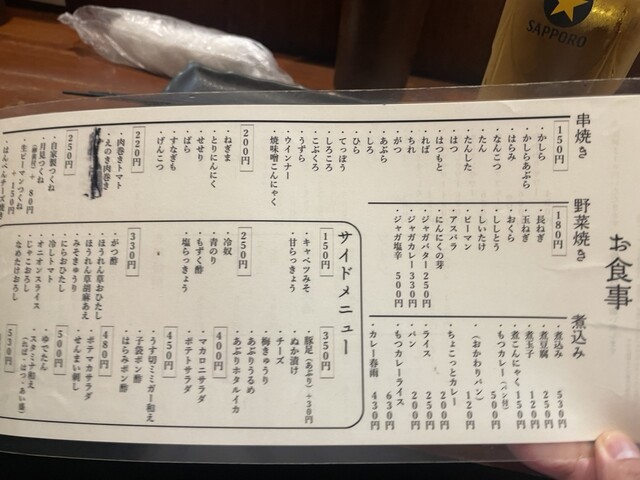 SAPPORO
お食事
串焼き
150円
・かしら
・かしらあぶら
・はらみ
・なんこつ
・たん
・たんした
・はつ
・はつもと
・れば
・ちれ
・がつ
・あぶら
・しろ
・ひら
・てっぽう
・しろころ
・こぶくろ
・うずら
・ウインナー
・焼味噌こんにゃく
200円
・ねぎま
・とりにんにく
・せせり
・ぱら
・すなぎも
・げんこつ
220円
・肉巻きトマト
・えのき肉巻き
250円
・自家製つくね
・月見つくね
+80円
・生ピーマンつくね
+150円
・はんぺんチーズ焼き
野菜焼き
180円
・長ねぎ
・玉ねぎ
・おくら
・ししとう
・しいたけ
・ピーマン
・アスパラ
・にんにくの芽
・ジャガバター 250円
・ジャガカレー 330円
・ジャガ塩辛 500円
煮込み
・煮込み 530円
・煮豆腐 250円
・煮玉子 120円
・煮こんにゃく 150円
・もつカレー(パン付) 500円
(おかわりパン) 120円
・ちょこっとカレー 200円
・ライス 250円
・パン 200円
・もつカレーライス 630円
・カレー春雨 430円
サイドメニュー
150円
・キャベツみそ
・甘らっきょう
250円
・冷奴
・青のり
・もずく酢
・塩らっきょう
330円
・がつ酢
・ほうれん草おひたし
・ほうれん草胡麻あえ
・みそきゅうり
・にらおひたし
・冷しトマト
・オニオンスライス
・じゃこおろし
・なめたけおろし
350円
・豚足(あぶり)+30円
・ぬか漬け
・チーズ
・梅きゅうり
・あぶりうるめ
・あぶりホタルイカ
400円
・マカロニサラダ
・ポテトサラダ
450円
・うす切ミミガー和え
・子袋ポン酢
・はらみポン酢
480円
・ポテマカサラダ
・せんまい刺し
500円
・ゆでたん
・スタミナ和え
530円